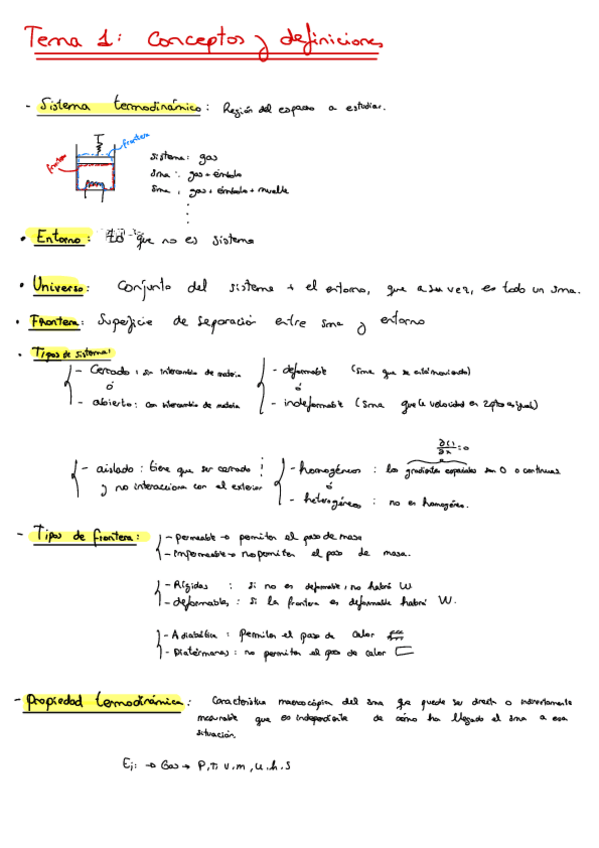 Tema 1: Conceptos y definiciones
- Sistema termodinámico: Región del espacio a estudiar.
frontera
frontera
sistema: gas
sma: gas + émbolo
sma: gas + émbolo + muelle
• Entorno: lo que no es sistema
• Universo: Conjunto del sistema + el entorno, que a su vez, es todo un sma.
• Frontera: Superficie de separación entre sma y entorno
• Tipos de sistema:
- Cerrado: sin intercambio de materia
ó
- abierto: con intercambio de materia
- deformable (sma que se está moviendo)
ó
- indeformable (sma que la velocidad en 2 ptos es igual)
- aislado: tiene que ser cerrado
y no interacciona con el exterior
∂( )/∂x = 0
- homogéneos: los gradientes espaciales son 0 o continuos
ó
- heterogéneos: no es homogéneo.
- Tipos de frontera:
- Permeable → permiten el paso de masa
- Impermeable → no permiten el paso de masa.
- Rígidas: si no es deformable, no habrá W
- deformables: si la frontera es deformable habrá W.
- Adiabática: permiten el paso de calor
- Diatérmanas: no permiten el paso de calor
- Propiedad termodinámica: Característica macroscópica del sma que puede ser directa o indirectamente
mesurable que es independiente de cómo ha llegado el sma a esa
situación.
Ej: → Gas → P, T, v, m, u, h, s